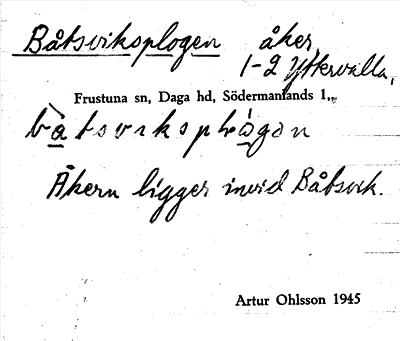 Båtsviksplogen åker,
1-2 Yttervalla,
Frustuna sn, Daga hd, Södermanlands l.,
Åkern ligger invid Båtsvik.
Artur Ohlsson 1945